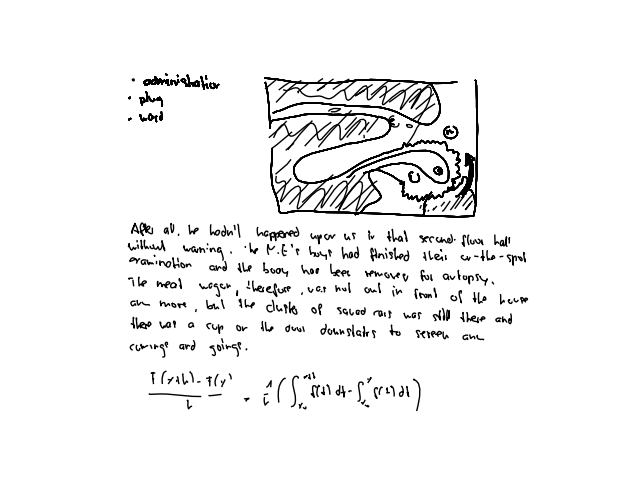 • administration
• plug
• word
After all, he hadn't happened upon us in that second-floor hall
without warning. The M.E.'s boys had finished their on-the-spot
examination and the body has been removed for autopsy.
The meat wagon, therefore, was not out in front of the house
any more, but the cluster of squad cars was still there and
there was a cop on the door downstairs to screen any
comings and goings.